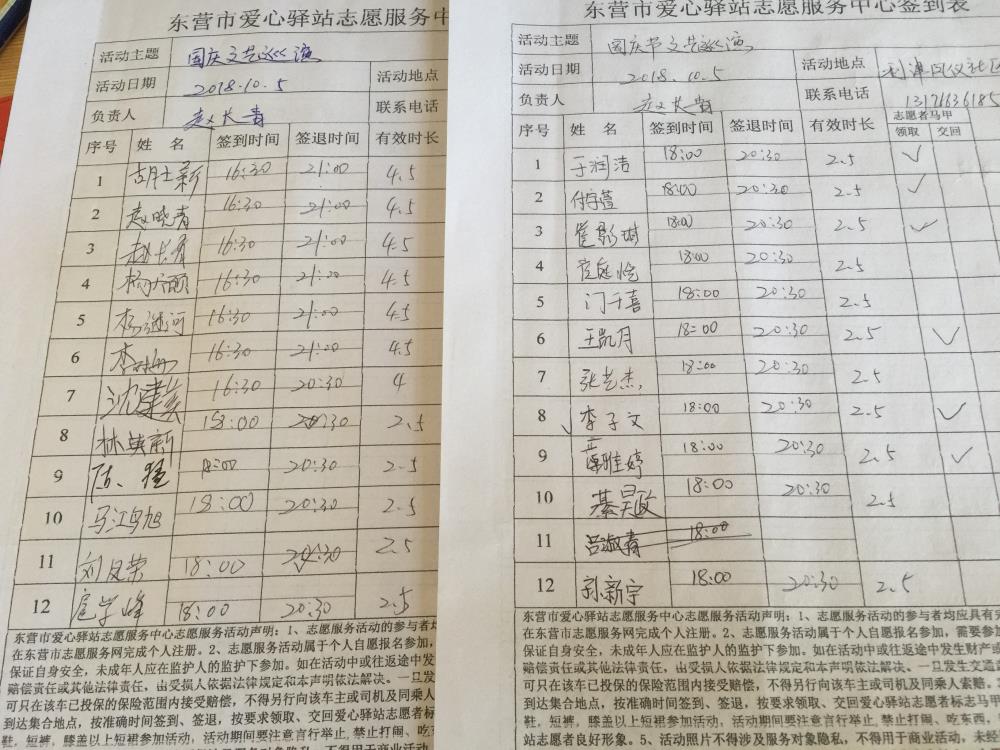 东营市爱心驿站志愿服务中
活动主题 国庆文艺巡演
活动日期 2018.10.5 活动地点
负责人 赵长青 联系电话
序号 姓 名 签到时间 签退时间 有效时长
1 胡士新 16:30 21:00 4.5
2 赵晓青 16:30 21:00 4.5
3 赵长青 16:30 21:00 4.5
4 16:30 21:00 4.5
5 16:30 21:00 4.5
6 16:30 21:00 4.5
7 沈建英 16:30 20:30 4
8 林英新 18:00 20:30 2.5
9 18:00 20:30 2.5
10 18:00 20:30 2.5
11 刘凤荣 18:00 20:30 2.5
12 扈学峰 18:00 20:30 2.5
东营市爱心驿站志愿服务中心志愿服务活动声明：1、志愿服务活动的参与者均
在东营市志愿服务网完成个人注册。2、志愿服务活动属于个人自愿报名参加，
保证自身安全，未成年人应在监护人的监护下参加。如在活动中或往返途中发
赔偿责任或其他法律责任，由受损人依据法律规定和本声明依法解决。一旦发
可只在该车已投保的保险范围内接受赔偿，不得另行向该车主或司机及同乘人
到达集合地点，按准确时间签到、签退，按要求领取、交回爱心驿站志愿者标
鞋，短裤，膝盖以上短裙参加活动，活动期间要注意言行举止，禁止打闹、吃
东营市爱心驿站志愿服务中心签到表
活动主题 国庆节文艺巡演
活动日期 2018.10.5 活动地点 利津凤仪社区
负责人 赵长青 联系电话 13176636185
序号 姓 名 签到时间 签退时间 有效时长 志愿者马甲
领取 交回
1 于润洁 18:00 20:30 2.5 ✓
2 付宇萱 18:00 20:30 2.5 ✓
3 18:00 20:30 2.5 ✓
4 18:00 20:30 2.5
5 门千喜 18:00 20:30 2.5
6 王凯月 18:00 20:30 2.5 ✓
7 张艺杰 18:00 20:30 2.5
8 李子文 18:00 20:30 2.5 ✓
9 18:00 20:30 2.5 ✓
10 綦昊政 18:00 20:30 2.5
11 吕淑青 18:00
12 孙新宇 18:00 20:30 2.5
东营市爱心驿站志愿服务中心志愿服务活动声明：1、志愿服务活动的参与者均应具有完
在东营市志愿服务网完成个人注册。2、志愿服务活动属于个人自愿报名参加，需要参加
保证自身安全，未成年人应在监护人的监护下参加。如在活动中或往返途中发生财产或
赔偿责任或其他法律责任，由受损人依据法律规定和本声明依法解决。一旦发生交通
可只在该车已投保的保险范围内接受赔偿，不得另行向该车主或司机及同乘人索赔。
到达集合地点，按准确时间签到、签退，按要求领取、交回爱心驿站志愿者标志马甲
鞋，短裤，膝盖以上短裙参加活动，活动期间要注意言行举止，禁止打闹、吃东西，
站志愿者良好形象。5、活动照片不得涉及服务对象隐私，不得用于商业活动，未经